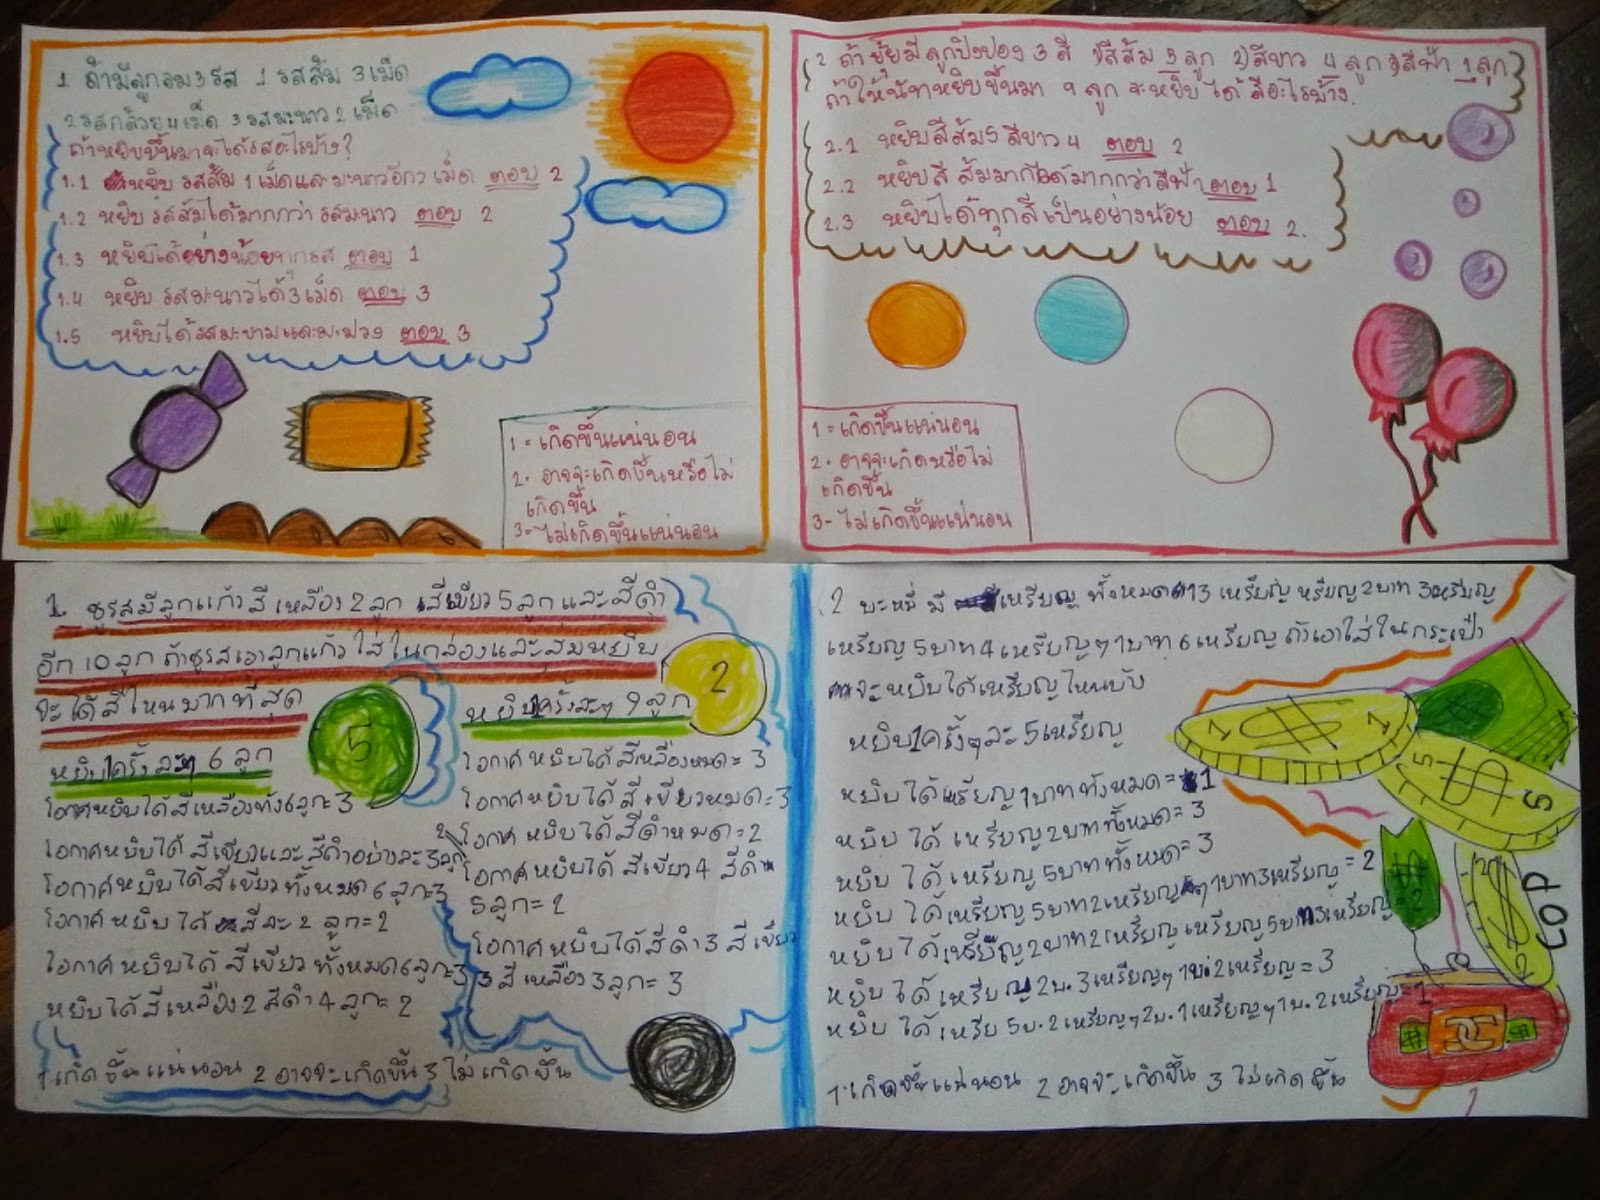 1. ถ้ามีลูกอม 3 รส 1 รสส้ม 3 เม็ด
2 รสกล้วย 4 เม็ด 3 รสมะนาว 2 เม็ด
ถ้าหยิบขึ้นมาจะได้รสอะไรบ้าง?
1.1 หยิบ รสส้ม 1 เม็ดและมะนาวอีก 2 เม็ด ตอบ 2
1.2 หยิบ รสส้มได้มากกว่า รสมะนาว ตอบ 2
1.3 หยิบได้อย่างน้อยทุกรส ตอบ 1
1.4 หยิบ รสมะนาวได้ 3 เม็ด ตอบ 3
1.5 หยิบได้รสมะขามและมะม่วง ตอบ 3
1 = เกิดขึ้นแน่นอน
2 = อาจจะเกิดขึ้นหรือไม่
เกิดขึ้น
3 = ไม่เกิดขึ้นแน่นอน
2 ถ้า ยุ้ยมีลูกปิงปอง 3 สี 1)สีส้ม 5 ลูก 2)สีขาว 4 ลูก 3)สีฟ้า 1 ลูก
ถ้าให้นัทหยิบขึ้นมา 9 ลูก จะหยิบได้ สีอะไรบ้าง.
2.1 หยิบสีส้ม 5 สีขาว 4 ตอบ 2
2.2 หยิบสี ส้มมาได้มากกว่าสีฟ้า ตอบ 1
2.3 หยิบได้ทุกสีเป็นอย่างน้อย ตอบ 2.
1 = เกิดขึ้นแน่นอน
2 = อาจจะเกิดหรือไม่
เกิดขึ้น
3 - ไม่เกิดขึ้นแน่นอน
1. ชูรสมีลูกแก้วสีเหลือง 2 ลูก สีเขียว 5 ลูก และสีดำ
อีก 10 ลูก ถ้าชูรสเอาลูกแก้วใส่ในกล่องและสุ่มหยิบ
จะได้สีไหนมากที่สุด
หยิบ 1 ครั้งละๆ 6 ลูก
5
โอกาศหยิบได้สีเหลืองทั้ง 6 ลูก = 3
โอกาศหยิบได้ สีเขียวและสีดำอย่างละ 3 ลูก = 2
โอกาศหยิบได้สีเขียวทั้งหมด 6 ลูก = 3
โอกาศหยิบได้ สีละ 2 ลูก = 2
โอกาศหยิบได้ สีเขียวทั้งหมด 6 ลูก = 3
หยิบได้สีเหลือง 2 สีดำ 4 ลูก = 2
หยิบ 1 ครั้งละๆ 9 ลูก
2
โอกาศหยิบได้สีเหลืองหมด = 3
โอกาศหยิบได้ สีเขียวหมด = 3
โอกาศหยิบได้สีดำหมด = 2
โอกาศหยิบได้ สีเขียว 4 สีดำ
5 ลูก = 2
โอกาศหยิบได้สีดำ 3 สีเขียว
3 สีเหลือง 3 ลูก = 3
1 เกิดขึ้นแน่นอน 2 อาจจะเกิดขึ้น 3 ไม่เกิดขึ้น
2 บะหมี่ มีเหรียญ ทั้งหมด 13 เหรียญ เหรียญ 2 บาท 3 เหรียญ
เหรียญ 5 บาท 4 เหรียญๆ 1 บาท 6 เหรียญ ถ้าเอาใส่ในกระเป๋า
จะหยิบได้เหรียญไหนบ้าง
หยิบ 1 ครั้งๆละ 5 เหรียญ
หยิบได้เหรียญ 1 บาททั้งหมด = 1
หยิบ ได้ เหรียญ 2 บาททั้งหมด = 3
หยิบ ได้ เหรียญ 5 บาททั้งหมด = 3
หยิบ ได้เหรียญ 5 บาท 2 เหรียญๆ 1 บาท 3 เหรียญ = 2
หยิบ ได้เหรียญ 2 บาท 2 เหรียญ เหรียญ 5 บาท 3 เหรียญ = 2
หยิบ ได้ เหรียญ 2 บ. 3 เหรียญๆ 1 บ. 2 เหรียญ = 3
หยิบ ได้ เหรีย 5 บ. 2 เหรียญๆ 2 บ. 1 เหรียญๆ 1 บ. 2 เหรียญ = 1
1 เกิดขึ้นแน่นอน 2 อาจจะเกิดขึ้น 3 ไม่เกิดขึ้น